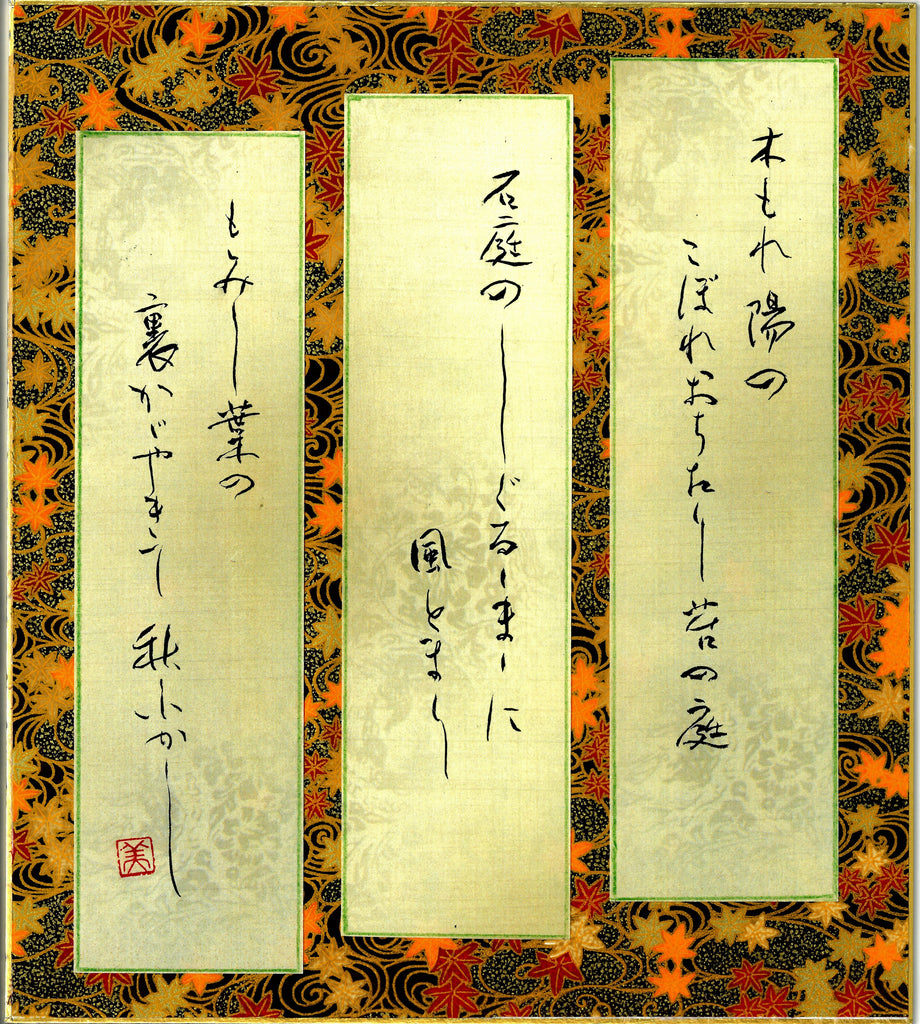 木もれ陽の
こぼれおちたり苔の庭
石庭のしぐるゝまゝに
風とまり
もみし葉の
裏かゞやきて 秋ふかし
美